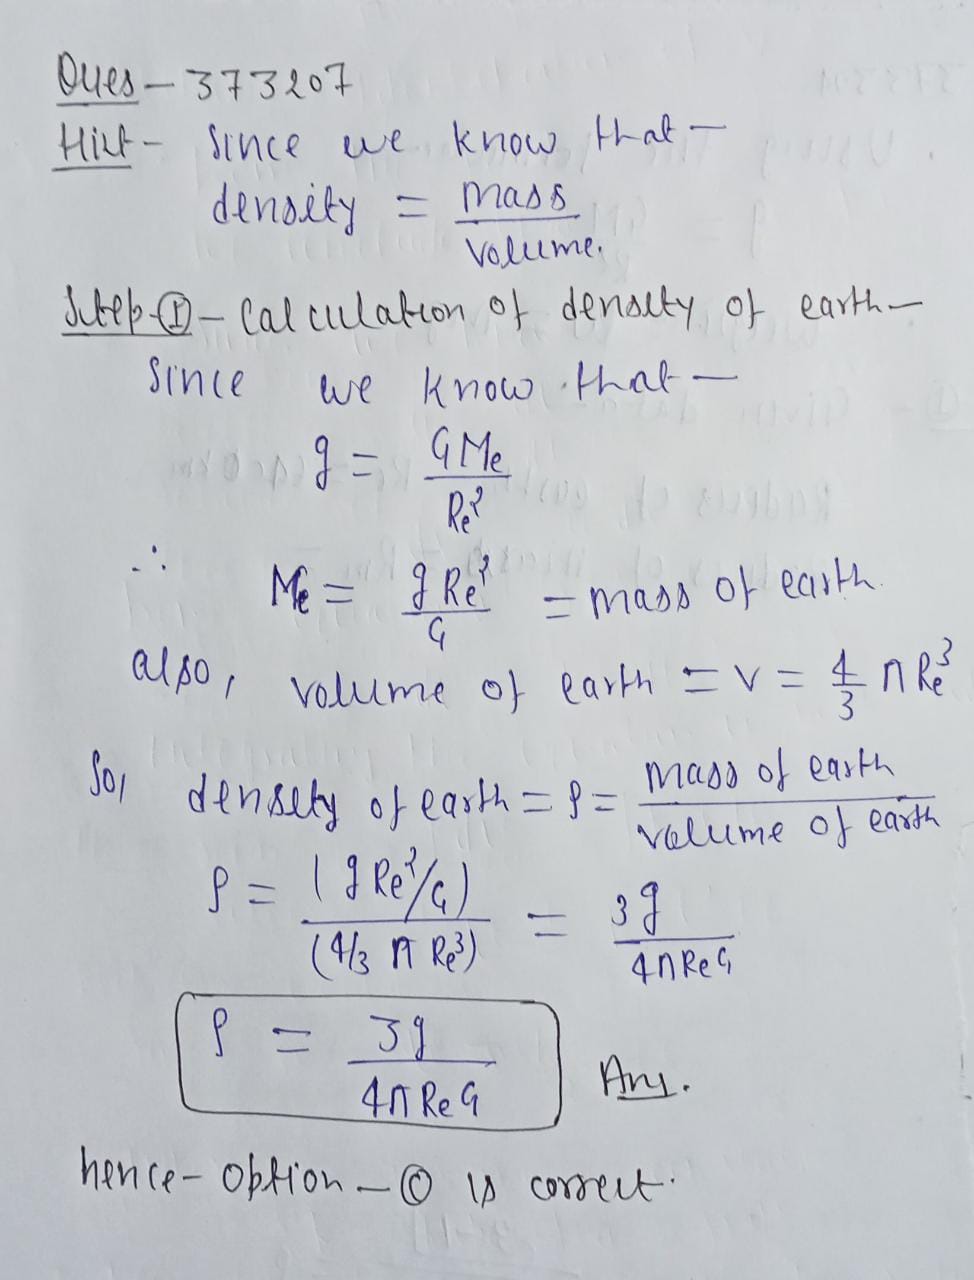 Ques - 373207
Hint - Since we know that -
density = mass / volume.
Step-① - Calculation of density of earth -
Since we know that -
g = GMe / Re²
∴ Me = gRe² / G = mass of earth.
also, volume of earth = V = 4/3 π Re³
So, density of earth = ρ = mass of earth / volume of earth
ρ = (gRe²/G) / (4/3 π Re³) = 3g / 4πReG
ρ = 3g / 4πReG Ans.
hence - option - Ⓒ is correct.